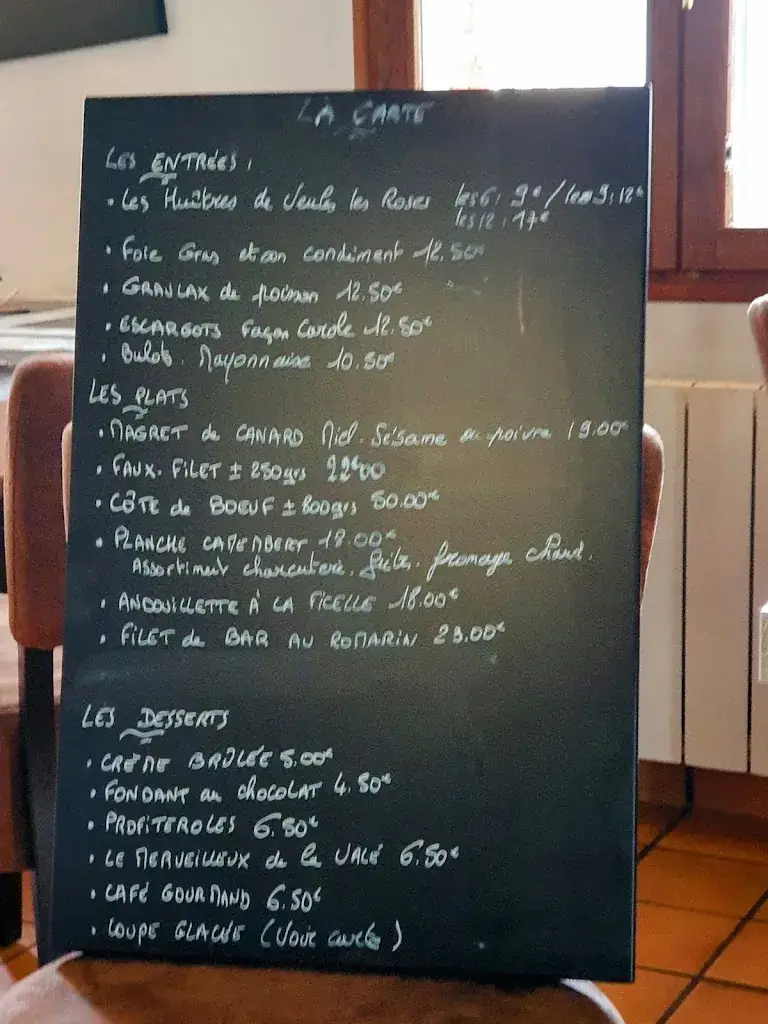 LA CARTE
LES ENTRÉES :
• Les Huîtres de Veules les Roses les 6 : 9€ / les 9 : 12€
les 12 : 17€
• Foie Gras et son condiment 12.50€
• GRAVLAX de poisson 12.50€
• ESCARGOTS Façon Carole 12.50€
• Bulots. Mayonnaise 10.50€
LES PLATS
• MAGRET de CANARD Miel. Sésame ou poivre 19.00€
• FAUX-FILET ± 250grs 22€00
• CÔTE de BOEUF ± 800grs 50.00€
• PLANCHE CAMEMBERT 18.00€
Assortiment charcuterie. frites. fromage chaud.
• ANDOUILLETTE À LA FICELLE 18.00€
• FILET de BAR AU ROMARIN 23.00€
LES DESSERTS
• CRÈME BRÛLÉE 5.00€
• FONDANT au chocolAT 4.50€
• PROFITEROLES 6.50€
• LE MERVEILLEUX de la VALÉ 6.50€
• CAFÉ GOURMAND 6.50€
• COUPE GLACÉE (Voir carte)